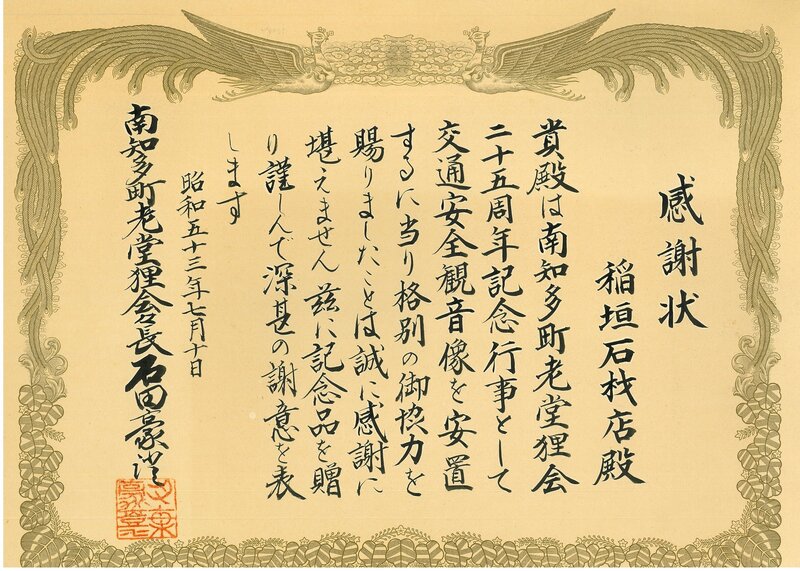 感謝状
稲垣石材店殿
貴殿は南知多町老堂狸会
二十五周年記念行事として
交通安全観音像を安置
するに当り格別の御協力を
賜りましたことは誠に感謝に
堪えません 茲に記念品を贈
り謹しんで深甚の謝意を表
します
昭和五十三年七月十日
南知多町老堂狸会長 石田豪澄